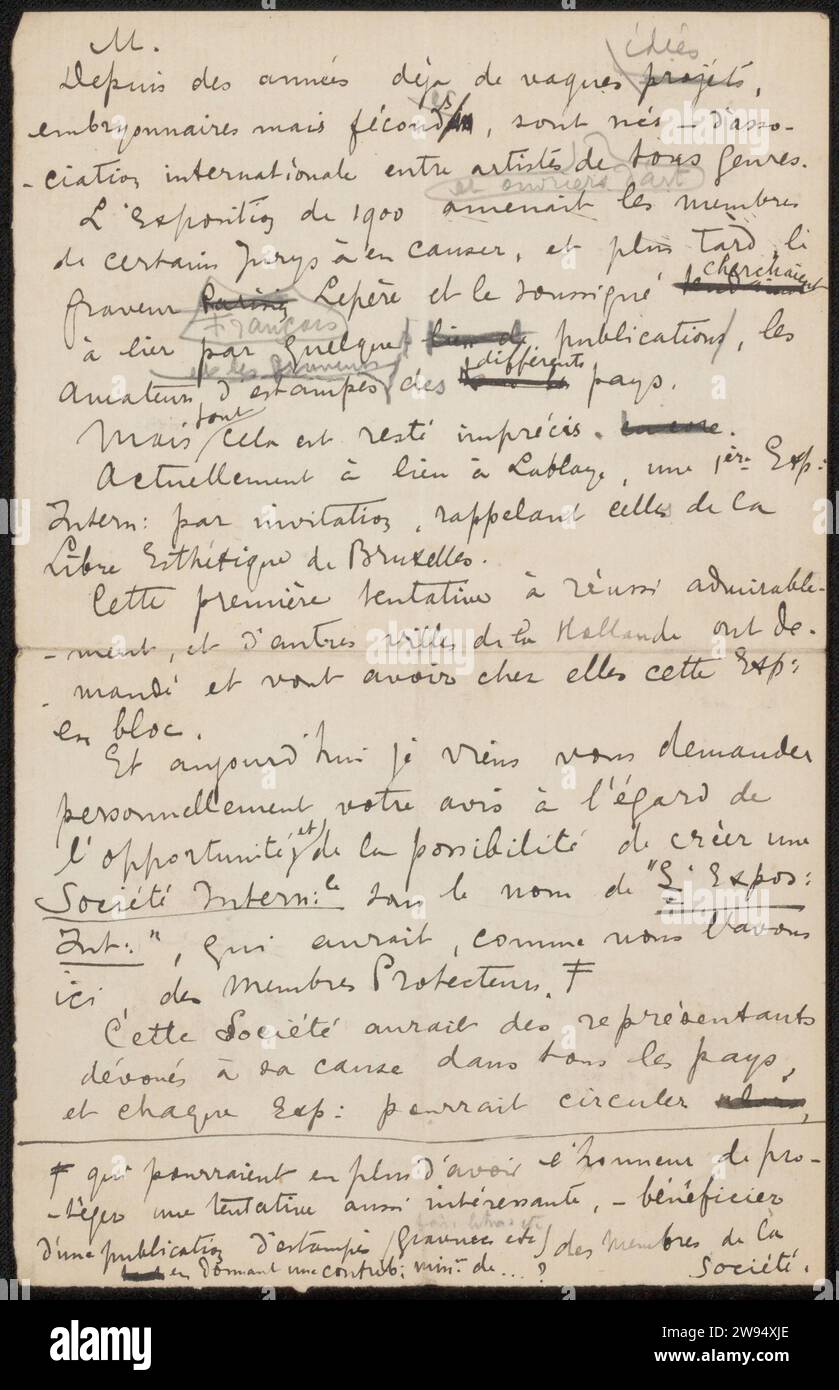 M.
idées
Depuis des années déja de vagues projets,
embryonnaires mais féconds, sont nés – d'asso-
-ciation internationale entre artistes de tous genres.
et ouvriers d'art
L'Exposition de 1900 amenait les membres
de certains Jurys à en causer, et plus tard, le
cherchaient
graveur Parisien Lepère et le soussigné
Français
à lier par quelque lien de publications, les
et les graveurs différents
amateurs d'estampes des pays.
tout
Mais cela est resté imprécis. encore.
Actuellement à lieu à Lablaye, une 1ère Exp:
Intern: par invitation, rappelant celles de la
Libre Esthétique de Bruxelles.
Cette première tentative à réussi admirable-
-ment, et d'autres villes de la Hollande ont de-
-mandé et vont avoir chez elles cette Exp:
en bloc.
Et aujourd'hui je viens vous demander
personnellement votre avis à l'égard de
l'opportunité, et de la possibilité de créer une
Société Intern:le sous le nom de "L'Expos:
Int:", qui aurait, comme nous l'avons
ici des Membres Protecteurs. Ŧ
Cette Société aurait des représentants
dévoués à sa cause dans tous les pays,
et chaque Exp: pourrait circuler
Ŧ qui pourraient en plus d'avoir l'honneur de pro-
-téger une tentative aussi intéressante, – bénéficier
d'une publication d'estampes (gravures etc) des membres de la
en donnant une contrib: min: de...? Société.
alamy
alamy
Image ID: 2W94XJE
www.alamy.com